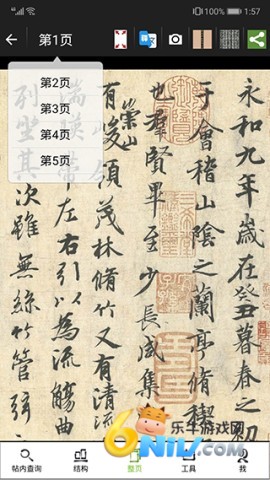 81 1:57
第1页
第2页
第3页
第4页
第5页
永和九年歲在癸丑暮春之初
于會稽山陰之蘭亭脩禊
也羣賢畢至少長咸集
有崇山峻領茂林脩竹又有清流
湍暎帶左右引以為流觴曲
列坐其次雖無絲竹管弦
乐牛游戏网
6NIU.COM
帖内查询
结构
整页
工具
我